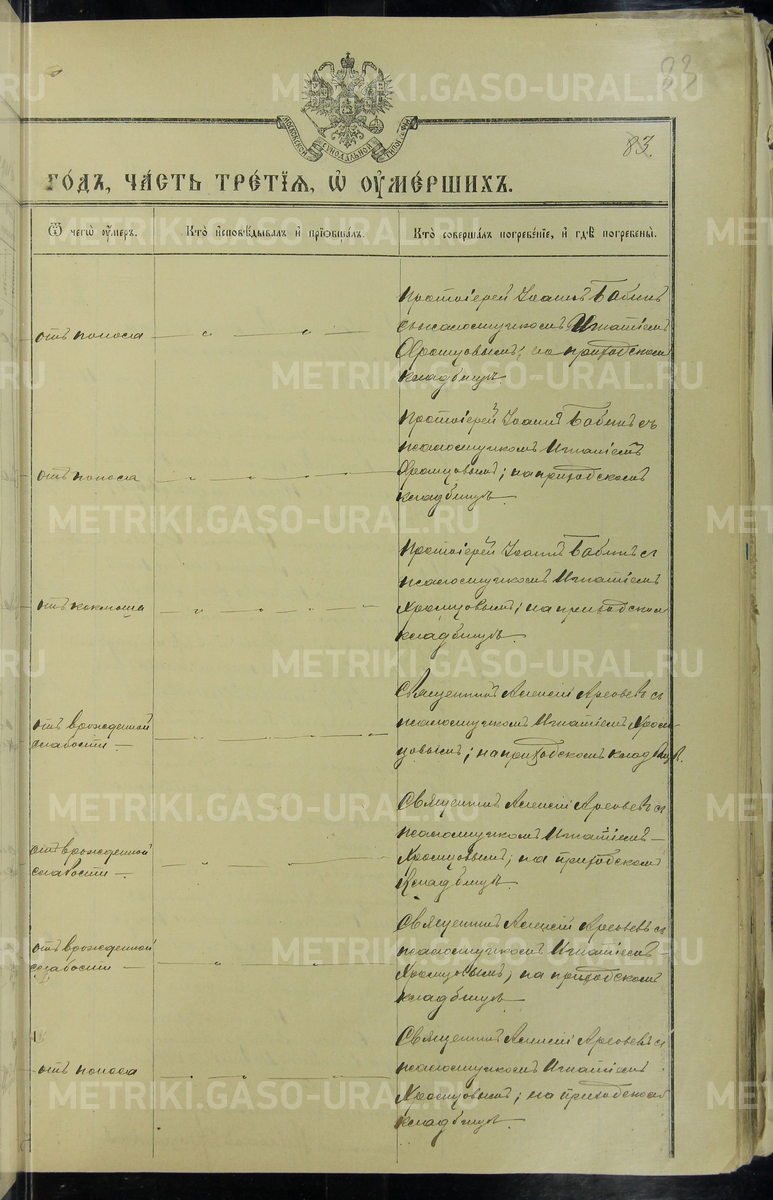 83
МОСКОВСКОЙ СѴНОДАЛЬНОЙ ТИПОГРАФІИ
83.
ГОДЪ, ЧАСТЬ ТРЕТІЯ, Ѡ ОУМЕРШИХЪ.
Ѿ чегѡ оумеръ.
Кто исповѣдывалъ и пріобщалъ.
Кто совершалъ погребеніе, и гдѣ погребены.
Протоіерей Іоаннъ Бабинъ
съ псаломщикомъ Игнатіемъ
отъ поноса
Хромцовымъ; на приходскомъ
кладбищѣ
Протоіерей Іоаннъ Бабинъ съ
псаломщикомъ Игнатіемъ
отъ поноса
Хромцовымъ; на приходскомъ
кладбищѣ.
Протоіерей Іоаннъ Бабинъ съ
псаломщикомъ Игнатіемъ
отъ коклюша
Хромцовымъ; на приходскомъ
кладбищѣ.
Священникъ Алексій съ
отъ врожденной
слабости
псаломщикомъ Игнатіемъ Хром-
цовымъ; на приходскомъ кладбищѣ.
Священникъ Алексій съ
псаломщикомъ Игнатіемъ
отъ врожденной
слабости
Хромцовымъ; на приходскомъ
кладбищѣ.
Священникъ Алексій съ
отъ врожденной
слабости
псаломщикомъ Игнатіемъ
Хромцовымъ; на приходскомъ
кладбищѣ.
Священникъ Алексій съ
отъ поноса
псаломщикомъ Игнатіемъ
Хромцовымъ; на приходскомъ
кладбищѣ.
METRIKI.GASO-URAL.RU